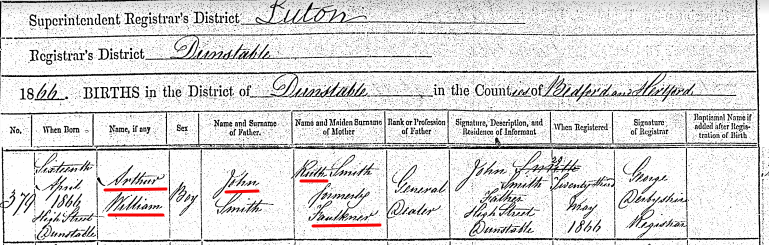 Superintendent Registrar's District Luton
Registrar's District Dunstable
1866. BIRTHS in the District of Dunstable in the Counties of Bedford and Hertford
No. When Born Name, if any Sex Name and Surname of Father. Name and Maiden Surname of Mother Rank or Profession of Father Signature, Description, and Residence of Informant When Registered Signature of Registrar Baptismal Name if added after Registration of Birth
379
Sixteenth
April
1866
High Street
Dunstable
Arthur
William
Boy
John
Smith
Ruth Smith
formerly
Faulkner
General
Dealer
John Smith
Smith
Father
High Street
Dunstable
23
Twenty third
May
1866
George
Derbyshire
Registrar